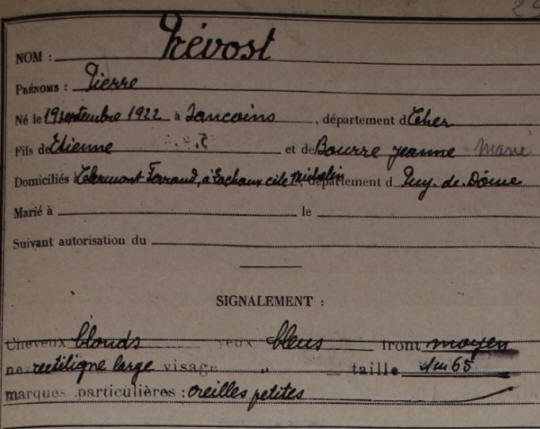 NOM : Prévost
PRÉNOMS : Pierre
Né le 19 septembre 1922 à Sancoins, département d Cher
Fils de Etienne et de Bourre Jeanne Marie
Domiciliés à Clermont-Ferrand, à Lachaux cité Michelin, département d Puy-de-Dôme
Marié à le
Suivant autorisation du
SIGNALEMENT :
Cheveux blonds yeux bleus front moyen
ne rectiligne large visage " taille 1m65
marques particulières : oreilles petites